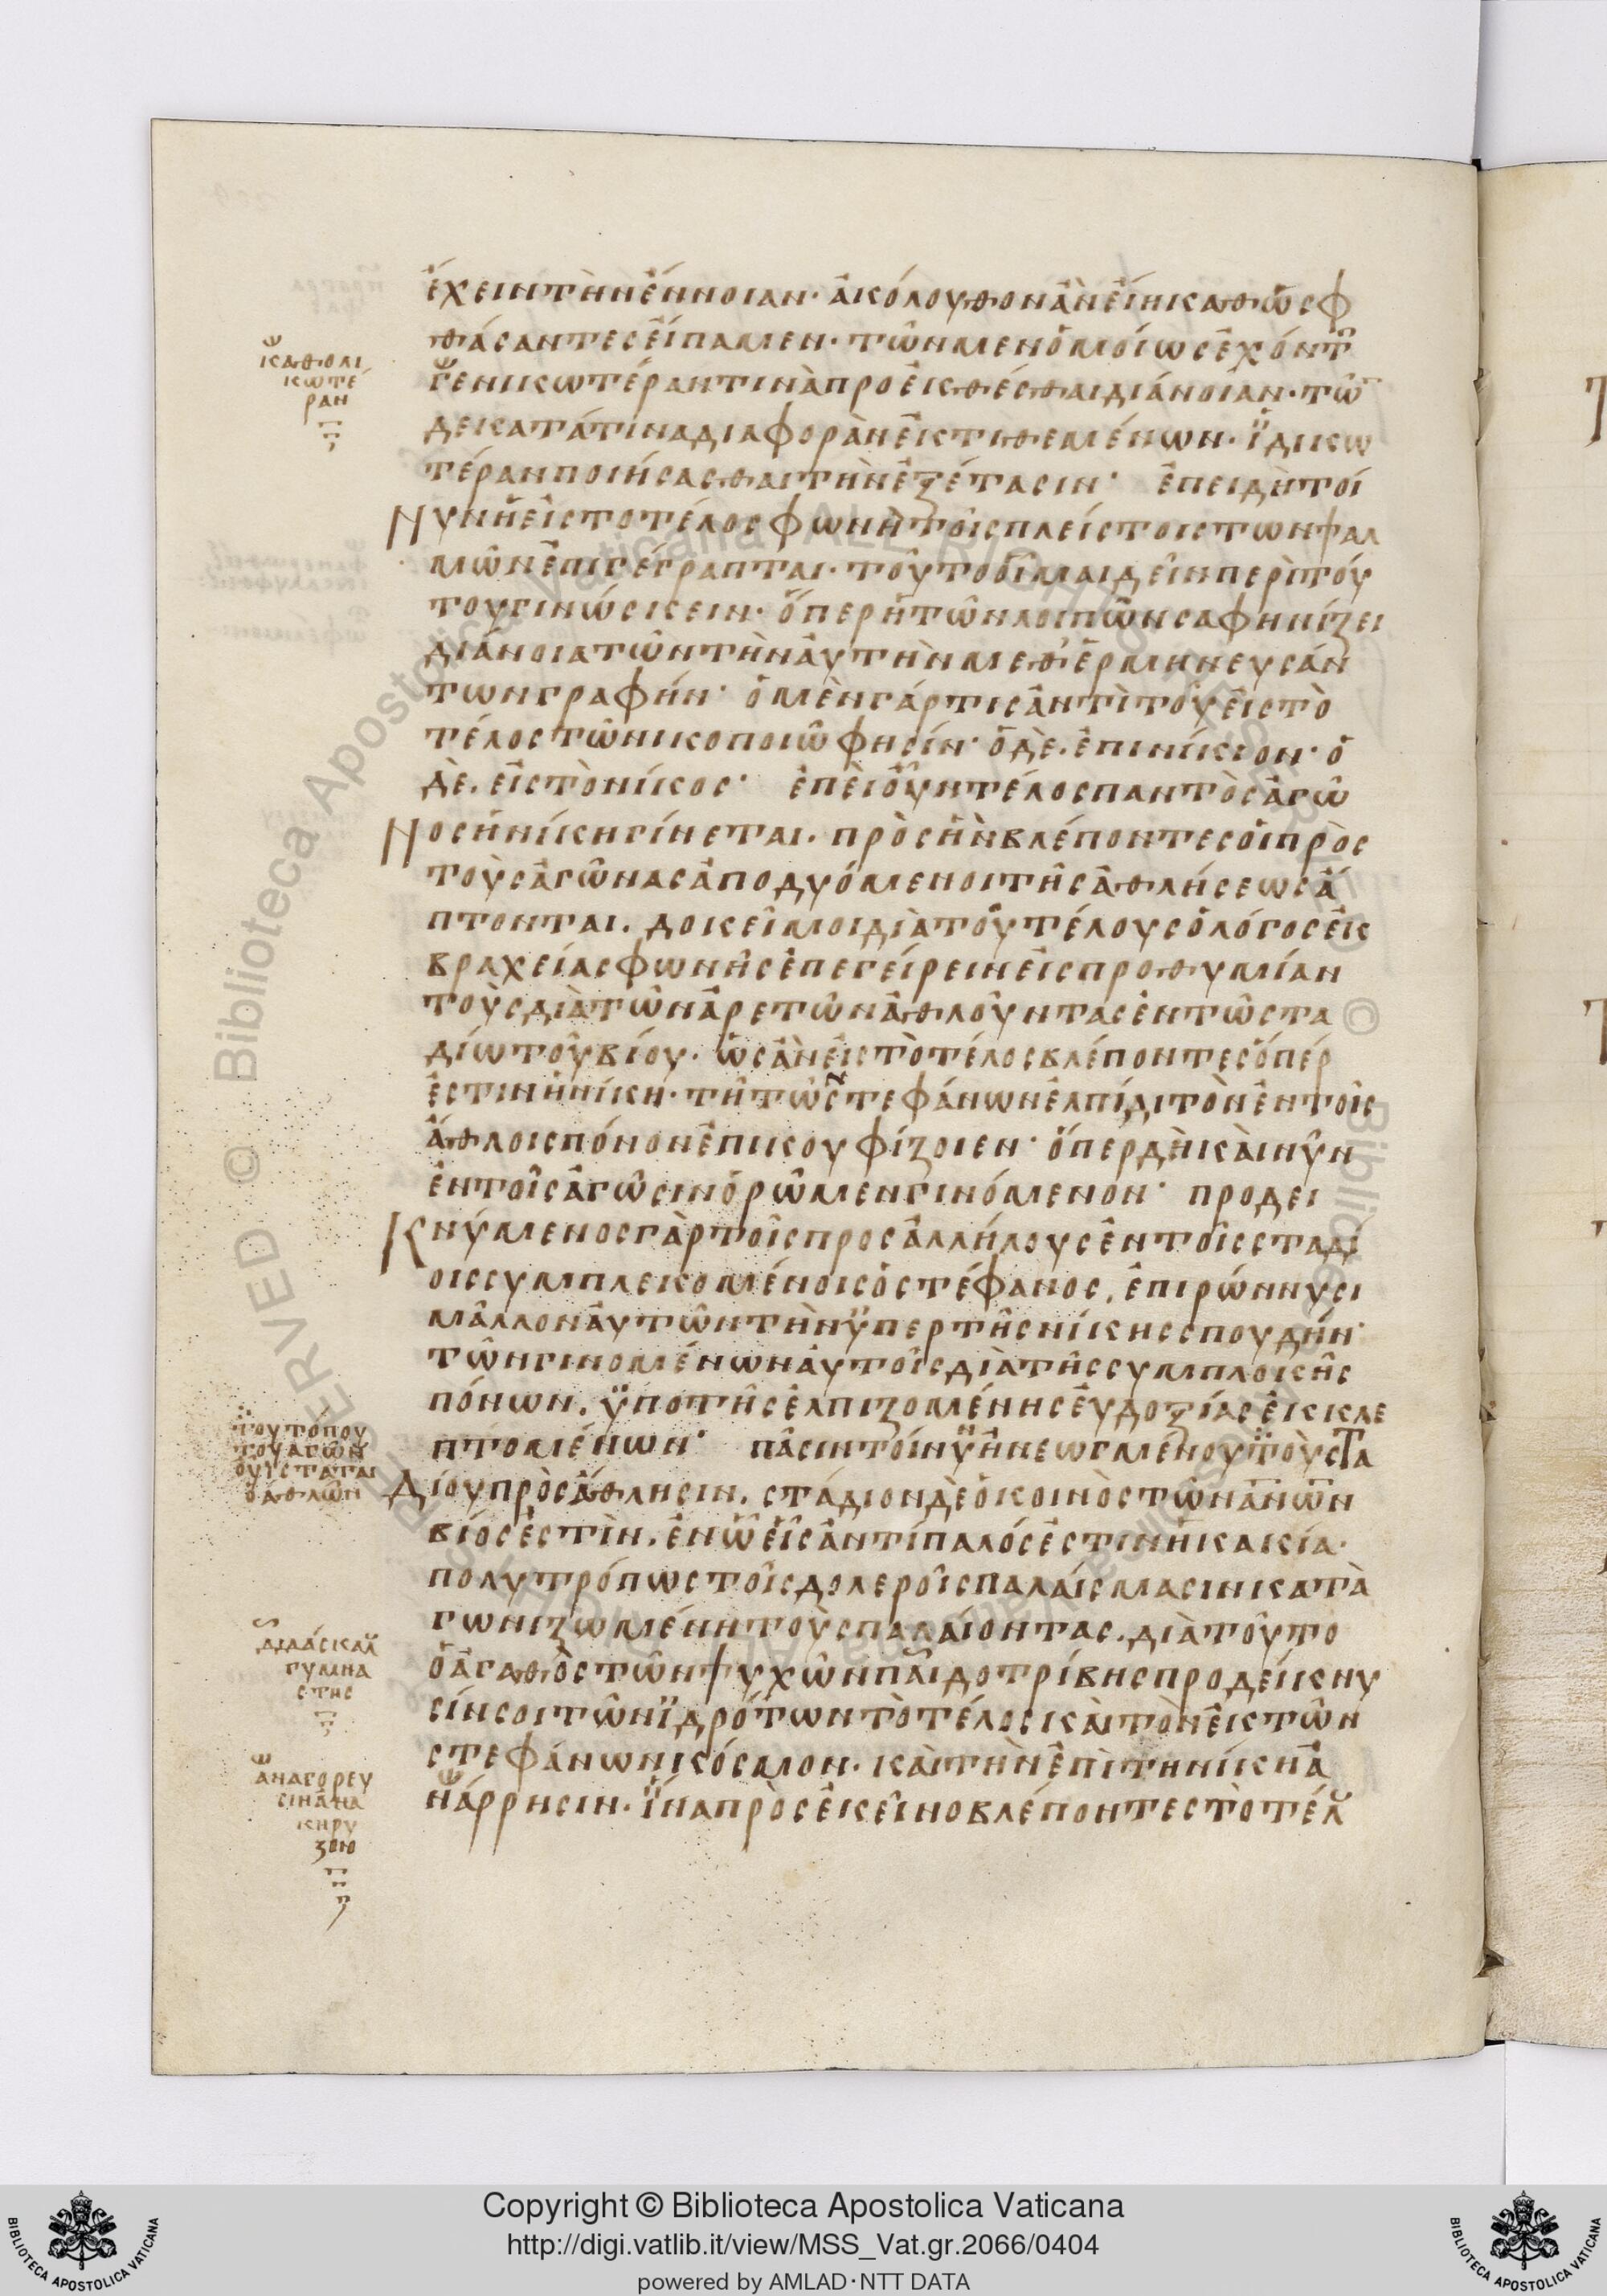 ἔχειν τὴν ἔννοιαν· ἀκόλουθον ἂν εἴη καθὼς φ
θάσαντες εἴπαμεν· τῶν μεν ὁμοίως ἐχόντ
γενικωτέραν τινὰ προεκθέσθαι διάνοιαν· τῶ
δε κατά τινα διαφορὰν ἐκτιθεμένων· ἰδικω
τέραν ποιήσασθαι τὴν ἐξέτασιν· ἐπειδὴ τοί
Νυν ἡ εἰς το τέλος φωνὴ τοῖς πλείστοις των ψαλ
μῶν ἐπιγέγραπται· τοῦτο οἶμαι δεῖν περὶ τού
του γινώσκειν· ὅπερ ἡ τῶν λοιπῶν σαφηνίζει
διάνοια τῶν τὴν αὐτὴν μεθερμηνευσάν
των γραφήν· ὁ μὲν γάρ τις ἀντὶ τοῦ εἰς τὸ
τέλος τῶ νικοποιῶ φησίν· ὁ δὲ. ἐπινίκιον· ὁ
δὲ. εἰς τὸ νίκος· ἐπεὶ οὖν τέλος παντὸς ἀγῶ
Νος ἡ νίκη γίνεται. πρὸς ἣν βλέποντες οἱ πρὸς
τοὺς ἀγῶνας ἀποδυόμενοι τῆς ἀθλήσεως ἅ
πτονται. δοκεῖ μοι διὰ τοῦ τέλους ὁ λόγος ἐκ
βραχείας φωνῆς ἐπεγείρειν εἰς προθυμίαν
τοὺς διὰ τῶν ἀρετῶν ἀθλοῦντας ἐν τῶ στα
δίω τοῦ βίου· ὡς ἂν εἰς τὸ τέλος βλέποντες ὅπέρ
ἐστιν ἡ νίκη· τῆ τῶν στεφάνων ἐλπίδι τὸν ἐν τοῖς
ἄθλοις πόνον ἐπικουφίζοιεν· ὅπερ δὴ καὶ νῦν
ἐν τοῖς ἀγῶσιν ὁρῶμεν γινόμενον· προδει
Κνύμενος γὰρ τοῖς προς ἀλλήλους ἐν τοῖς σταδί
οις συμπλεκομένοις ὁ στέφανος, ἐπιρώννυσι
μᾶλλον αὐτῶν τὴν ὑπερ τῆς νίκης σπουδήν·
τῶν γινομένων αὐτοῖς διὰ τῆς συμπλοκῆς
πόνων. ὑπο τῆς ἐλπιζομένης εὐδοξίας ἐκκλε
πτομένων· πᾶσιν τοίνυν ἠνεωγμένου τοῦ στα
Δίου πρὸς ἄθλησιν. στάδιον δὲ ὁ κοινὸς τῶν ἀνῶν
βίος ἐστὶν. ἐν ὧ εἷς ἀντίπαλός ἐστιν ἡ κακία·
πολυτρόπως τοῖς δολεροῖς παλαίσμασιν κατὰ
γωνιζωμένη τοὺς παλαίοντας. διὰ τοῦτο
ὁ ἀγαθὸς τῶν ψυχῶν παιδοτρίβης προδείκνυ
σίν σοι τῶν ἱδρότων τὸ τέλος καὶ τὸν ἐκ τῶν
στεφάνων κόσμον· καὶ τὴν ἐπὶ τη νίκη ἀ
νάρρησιν· ἵνα πρὸς ἐκεῖνο βλέποντες τὸ τέλ
καθολι
κωτέ
ραν
τοῦ τόπου
τοῦ ἀγῶν
οὗ ἵσταται
ὁ ἀθλῶν
διδάσκαλ
γυμνα
στης
ἀναγόρευ
σιν ἀνα
κηρυ
ξϊν
Copyright © Biblioteca Apostolica Vaticana
http://digi.vatlib.it/view/MSS_Vat.gr.2066/0404
powered by AMLAD·NTT DATA